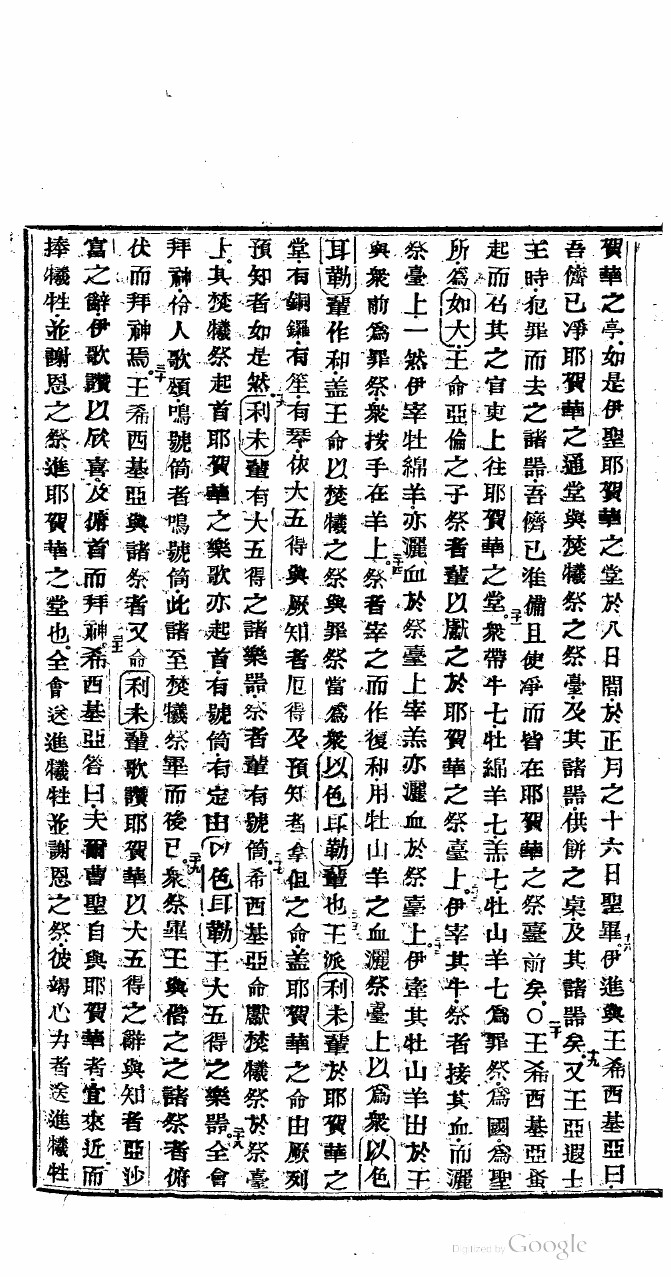 賀華之亭如是伊聖耶賀華之堂於八日間於正月之十六日聖畢十八伊進與王希西基亞曰
吾儕已凈耶賀華之通堂與焚犧祭之祭臺及其諸噐供餅之桌及其諸噐矣十九又王亞遐士
王時犯罪而去之諸噐吾儕已准備且使凈而皆在耶賀華之祭臺前矣○二十王希西基亞蚤
起而召其之官吏上往耶賀華之堂二一衆帶牛七牡綿羊七羔七牡山羊七爲罪祭爲國爲聖
所爲如大王命亞倫之子祭者輩以獻之於耶賀華之祭臺上二二伊宰其牛祭者接其血而灑
祭臺上一然伊宰牡綿羊亦灑血於祭臺上宰羔亦灑血於祭臺上二三伊牽其牡山羊出於王
與衆前爲罪祭衆按手在羊上二四祭者宰之而作復和用牡山羊之血灑祭臺上以爲衆以色
耳勒輩作和盖王命以焚犧之祭與罪祭當爲衆以色耳勒輩也二五王派利未輩於耶賀華之
堂有銅鑼有笙有琴依大五得與厥知者厄得及預知者拿但之命盖耶賀華之命由厥列
預知者如是然二六利未輩有大五得之諸樂噐祭者輩有號筒二七希西基亞命獻焚犧祭於祭臺
上其焚犧祭起首耶賀華之樂歌亦起首有號筒有定由以色耳勒王大五得之樂噐二八全會
拜神伶人歌頌鳴號筒者鳴號筒此諸至焚犧祭畢而後已二九衆祭畢王與偕之之諸祭者俯
伏而拜神焉三十王希西基亞與諸祭者又命利未輩歌讚耶賀華以大五得之辭與知者亞沙
富之辭伊歌讚以欣喜及俯首而拜神三一希西基亞答曰夫爾曹聖自與耶賀華者宜來近而
捧犧牲並謝恩之祭進耶賀華之堂也全會送進犧牲並謝恩之祭彼竭心力者送進犧牲
Digitized by Google